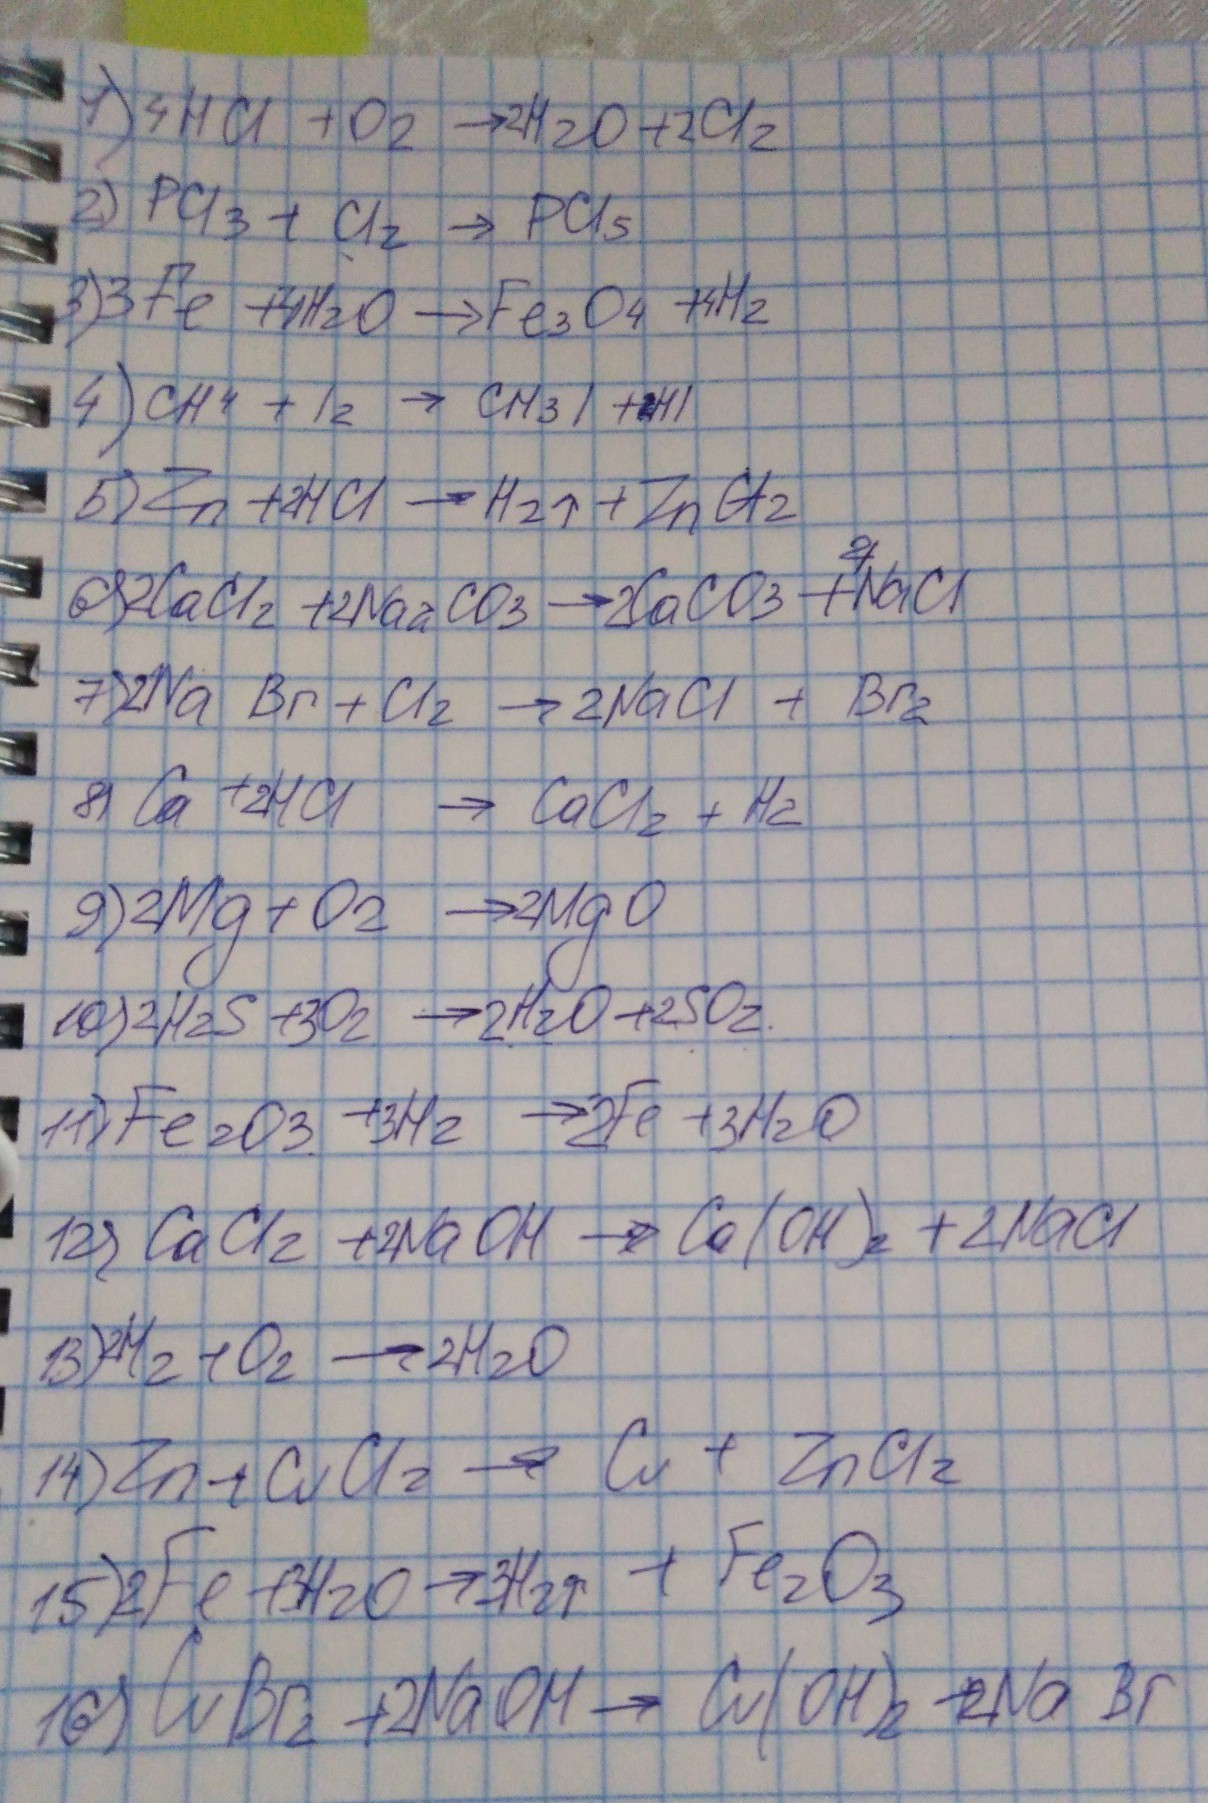 1) 4HCl + O2 → 2H2O + 2Cl2
2) PCl3 + Cl2 → PCl5
3) 3Fe + 4H2O → Fe3O4 + 4H2
4) CH4 + I2 → CH3I + HI
5) Zn + 2HCl → H2↑ + ZnCl2
6) 2CaCl2 + 2Na2CO3 → 2CaCO3 + 4NaCl
7) 2NaBr + Cl2 → 2NaCl + Br2
8) Ca + 2HCl → CaCl2 + H2
9) 2Mg + O2 → 2MgO
10) 2H2S + 3O2 → 2H2O + 2SO2.
11) Fe2O3 + 3H2 → 2Fe + 3H2O
12) CaCl2 + 2NaOH → Ca(OH)2 + 2NaCl
13) 2H2 + O2 → 2H2O
14) Zn + CuCl2 → Cu + ZnCl2
15) 2Fe + 3H2O → 3H2↑ + Fe2O3
16) CuBr2 + 2NaOH → Cu(OH)2 + 2NaBr